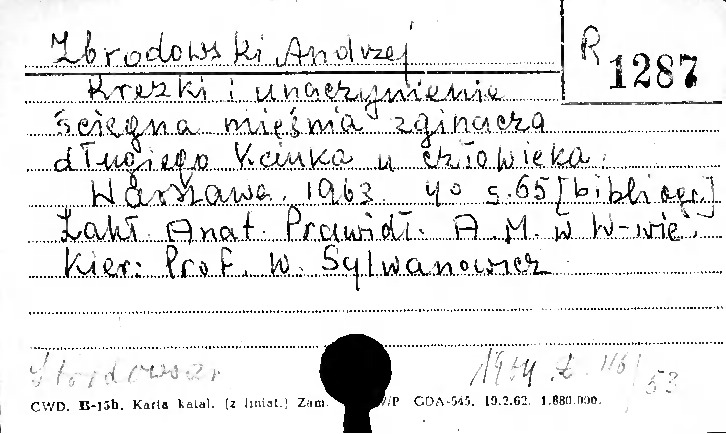 Zbrodowski Andrzej
R 1287
Krezki i unaczynienie
ścięgna mięśnia zginacza
długiego kciuka u człowieka.
Warszawa. 1963. 4° s.65 [bibliogr.]
Zakł. Anat. Prawidł. A.M. w W-wie.
Kier: Prof. W. Sylwanowicz
1964 z. 116/53
CWD. B-15h. Karta katal. (z liniat.) Zam. WP GDA-545. 19.2.62. 1.880.000.